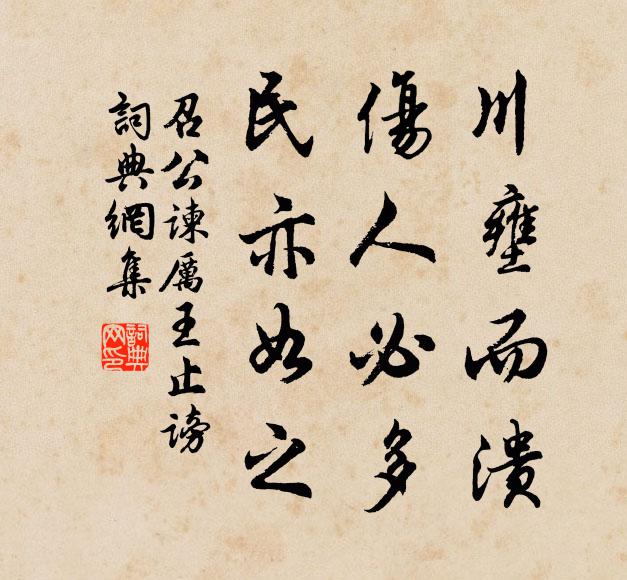 川壅而潰
傷人必多
民亦如之
召公諫厲王止謗
詞典網集
詞典網印